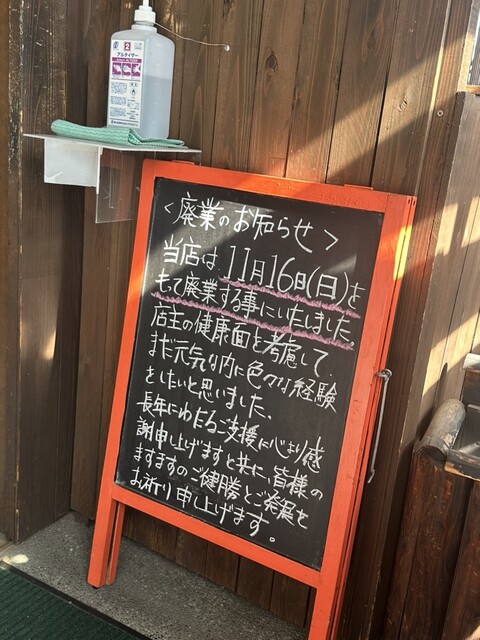 2
アルタイザー
<廃業のお知らせ>
当店は11月16日(日)を
もて廃業する事にいたしました。
店主の健康面を考慮して
まだ元気な内に色々な経験
をしたいと思いました、
長年にわたるご支援に心より感
謝申し上げますと共に、皆様の
ますますのご健勝とご発展を
お祈り申し上げます。